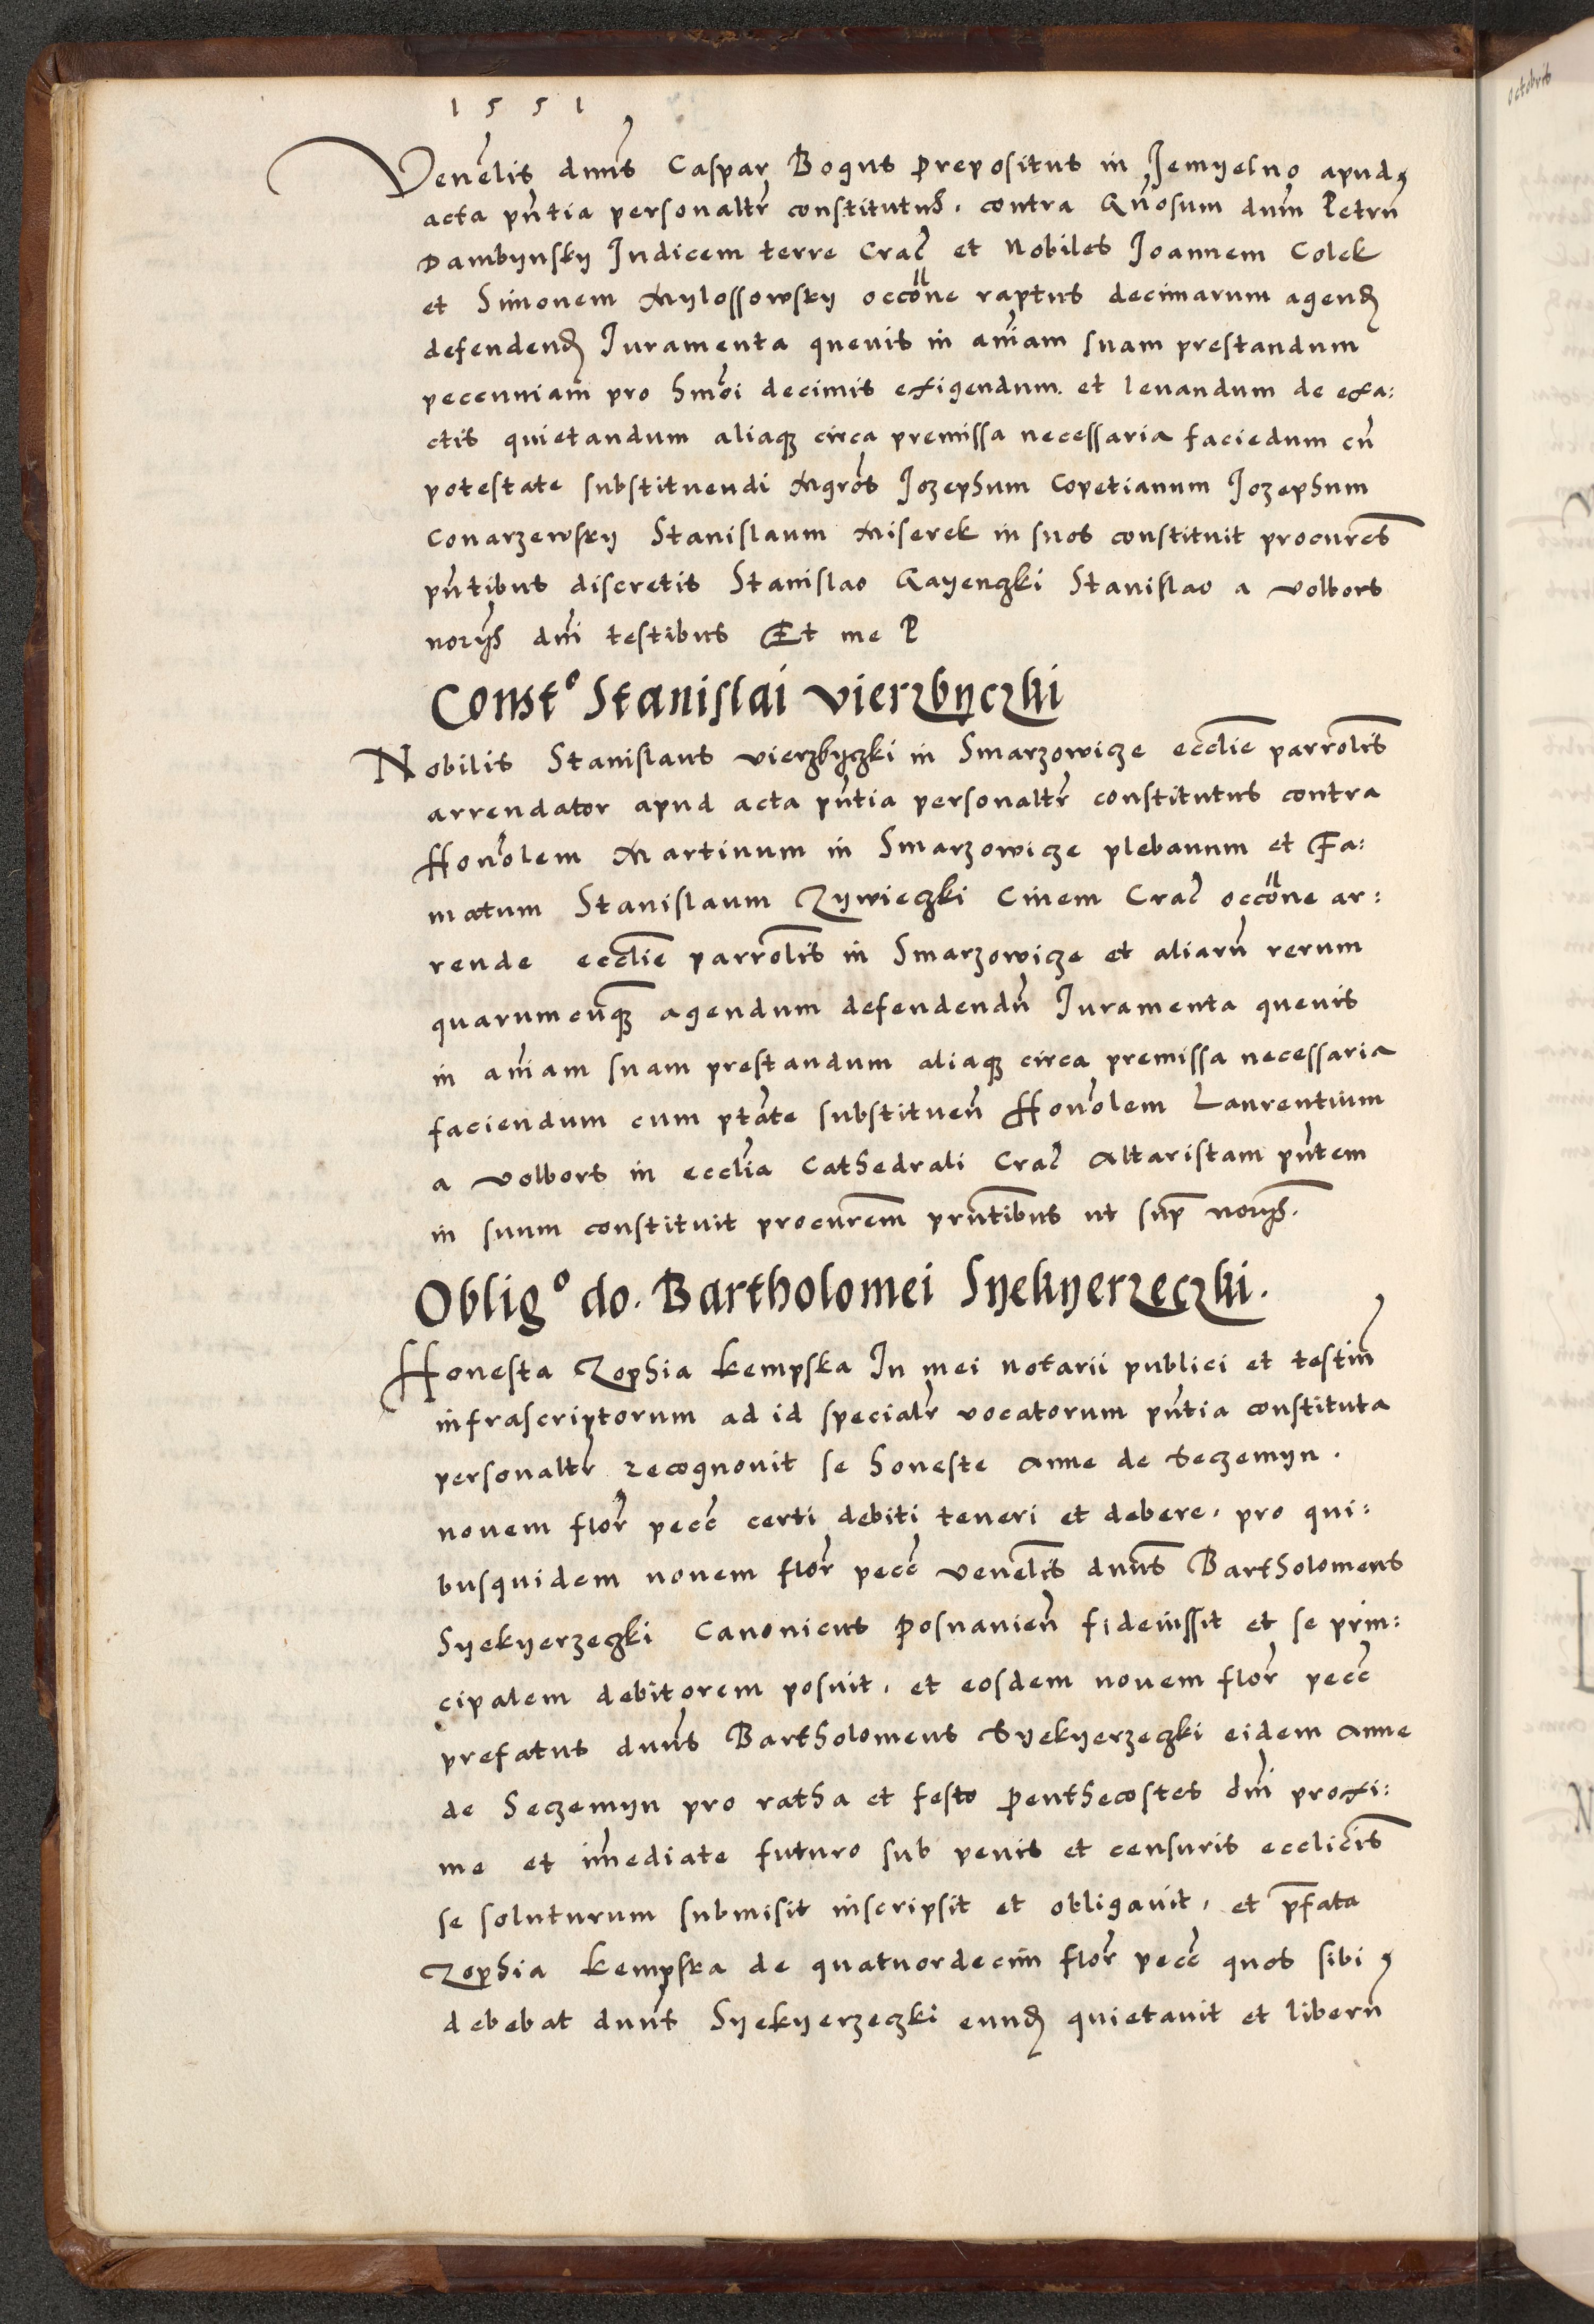 1551
Octobris
Venelis dnus Caspar Bogus Prepositus in Jemyelno apud
acta pntia personaltr constitutus. contra Gnosum dnm Petru
Dambynsky Judicem terre Crac et Nobiles Joannem Colek
et Simonem Mylossowsky occone raptus decimarum agend
defendend Juramenta quevis in aniam suam prestandum
peccuniam pro hmoi decimis exigendum. et levandum de exa:
ctis quietandum aliaq circa premissa necessaria faciedum cu
potestate substituendi Mgros Jozephum Copetianum Jozephum
Conarzewsky Stanislaum Miserek in suos constituit procures
pntibus discretis Stanislao Gayenczki Stanislao a Volbors
noriis dni testibus Et me P
Const° Stanislai Vierzbyczki
Nobilis Stanislaus Vierzbyczki in Smarzowicze ecclie parrolis
arrendator apud acta pntia personaltr constitutus contra
Honolem Martinum in Smarzowicze plebanum et Fa:
matum Stanislaum Zywieczki Civem Crac occone ar:
rende ecclie parrolis in Smarzowicze et aliaru rerum
quarumcuq agendum defendendu Juramenta quevis
in aniam suam prestandum aliaq circa premissa necessaria
faciendum cum ptate substituen Honolem Laurentium
a Volbors in ecclia Cathedrali Crac Altaristam pntem
in suum constituit procurem prntibus ut sup noriis.
Oblig° do. Bartholomei Syekyerzeczki.
Honesta Zophia Kempska In mei notarii publici et testiu
infrascriptorum ad id specialr vocatorum pntia constituta
personaltr recognovit se honeste Anne de Seczemyn.
novem flor pecc certi debiti teneri et debere. pro qui:
busquidem novem flor pecc venelis dnus Bartholomeus
Syekyerzeczki Canonicus Posnanien fideiussit et se prin:
cipalem debitorem posuit. et eosdem novem flor pecc
prefatus dnus Bartholomeus Syekyerzeczki eidem Anne
de Seczemyn pro ratha et festo Penthecostes dni proxi:
me et imediate futuro sub penis et censuris ecclicis
se soluturum submisit inscripsit et obligavit, et pfata
Zophia Kempska de quatuordecim flor pecc quos sibi
debebat dnus Syekyerzeczki eund quietavit et liberu